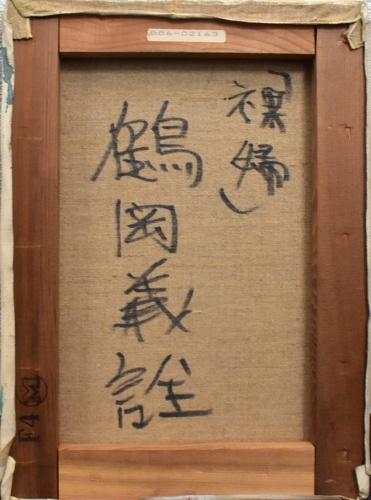 006-02163
「裸婦」
鶴岡義詮
F4 M